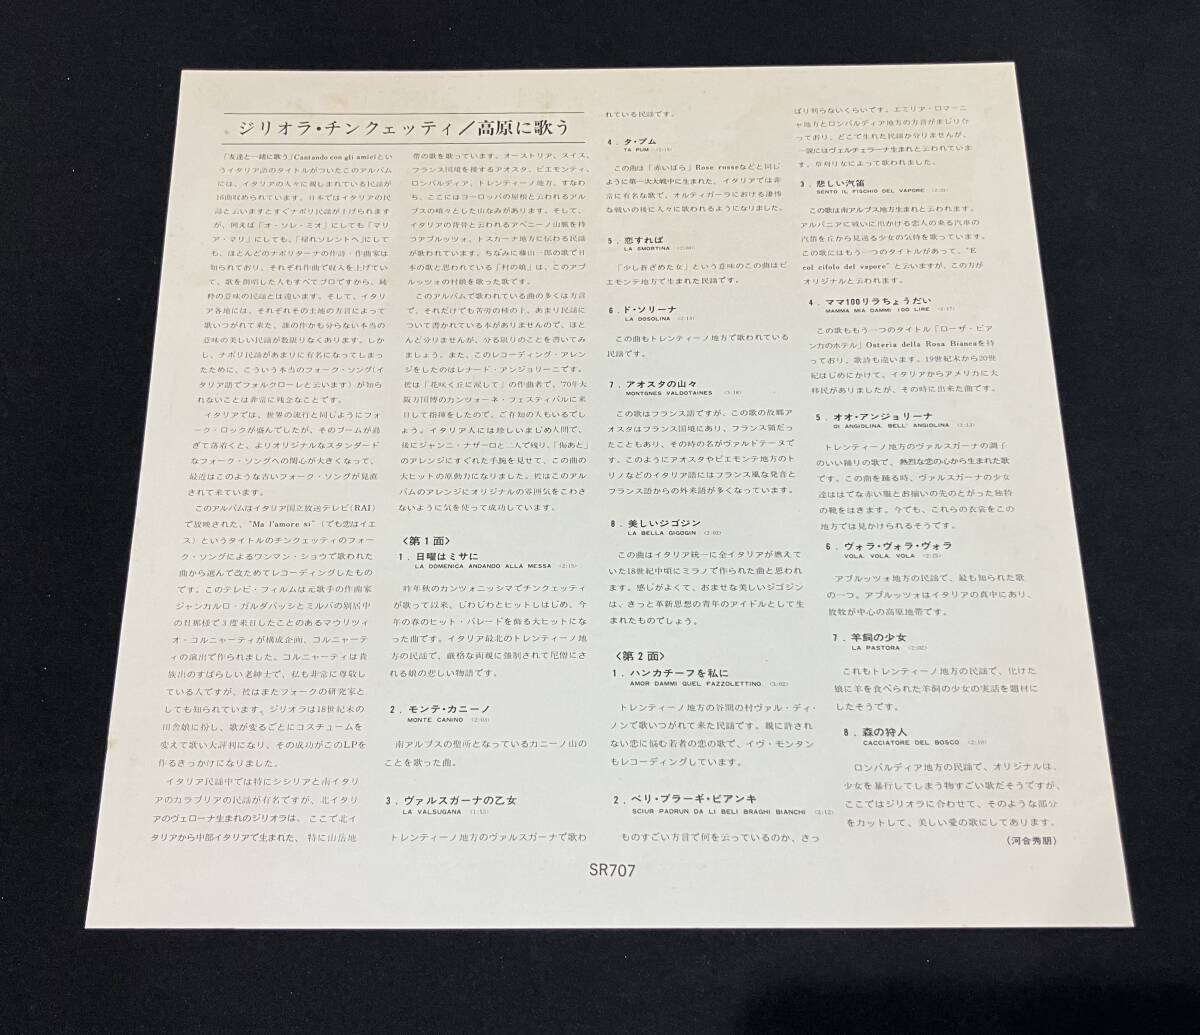 ジリオラ・チンクェッティ／高原に歌う
「友達と一緒に歌う」Cantando con gli amiciとい
うイタリア語のタイトルがついたこのアルバム
には、イタリアの人々に親しまれている民謡が
16曲収められています。日本ではイタリアの民
謡と云いますとすぐナポリ民謡が上げられます
が、例えば「オ・ソレ・ミオ」にしても「マリ
ア・マリ」にしても、「帰れソレントへ」にして
も、ほとんどのナポリターナの作詩・作曲家は
知られており、それぞれ作曲で収入を上げてい
て、歌を創唱した人もすべてプロですから、純
粋の意味の民謡とは違います。そして、イタリ
ア各地には、それぞれその土地の方言によって
歌いつがれて来た、誰の作かも分らない本当の
意味の美しい民謡が数限りなくあります。しか
し、ナポリ民謡があまりに有名になってしまっ
たために、こういう本当のフォーク・ソング（イ
タリア語でフォルクローレと云います）が知ら
れないことは非常に残念なことです。
イタリアでは、世界の流行と同じようにフォ
ーク・ロックが盛んでしたが、そのブームが過
ぎて落着くと、よりオリジナルなスタンダード
なフォーク・ソングへの関心が大きくなって、
最近はこのような古いフォーク・ソングが見直
されて来ています。
このアルバムはイタリア国立放送テレビ(RAI)
で放映された、"Ma l'amore si"（でも恋はイエ
ス）というタイトルのチンクェッティのフォー
ク・ソングによるワンマン・ショウで歌われた
曲から選んで改ためてレコーディングしたもの
です。このテレビ・フィルムは元歌手の作曲家
ジャンカルロ・ガルダバッシとミルバの別居中
の旦那様で３度来日したことのあるマウリツィ
オ・コルニャーティが構成企画、コルニャーテ
ィの演出で作られました。コルニャーティは貴
族出のすばらしい老紳士で、私も非常に尊敬し
ている人ですが、彼はまたフォークの研究家と
しても知られています。ジリオラは18世紀末の
田舎娘に扮し、歌が変るごとにコスチュームを
変えて歌い大評判になり、その成功がこのLPを
作るきっかけになりました。
イタリア民謡中では特にシシリアと南イタリ
アのカラブリアの民謡が有名ですが、北イタリ
アのヴェローナ生まれのジリオラは、ここで北イ
タリアから中部イタリアで生まれた、特に山岳地
帯の歌を歌っています。オーストリア、スイス、
フランス国境を接するアオスタ、ピエモンティ、
ロンバルディア、トレンティーノ地方、すなわ
ち、ここにはヨーロッパの屋根と云われるアル
プスの峨々とした山なみがあります。そして、
イタリアの背骨と云われるアペニーノ山脈を持
つアブルッツォ、トスカーナ地方に伝わる民謡
が歌われています。ちなみに藤山一郎の歌で日
本の歌と思われている「村の娘」は、このアブ
ルッツォの村娘を歌った歌です。
このアルバムで歌われている曲の多くは方言
で、それだけでも苦労の種の上、あまり民謡に
ついて書かれている本がありませんので、ほと
んど分りませんが、分る限りのことを書いてみ
ましょう。また、このレコーディング・アレン
ジをしたのはレナード・アンジョリーニです。
彼は「花咲く丘に涙して」の作曲者で、'70年大
阪万国博のカンツォーネ・フェスティバルに来
日して指揮をしたので、ご存知の人もいるでし
ょう。イタリア人には珍しいまじめ人間で、
後にジャンニ・ナザーロと二人で残り、「傷あと」
のアレンジにすぐれた手腕を見せて、この曲の
大ヒットの原動力になりました。彼はこのアル
バムのアレンジにオリジナルの雰囲気をこわさ
ないように気を使って成功しています。
〈第１面〉
１．日曜はミサに
LA DOMENICA ANDANDO ALLA MESSA (2:15)
昨年秋のカンツォニッシマでチンクェッティ
が歌って以来、じわじわとヒットしはじめ、今
年の春のヒット・パレードを飾る大ヒットにな
った曲です。イタリア最北のトレンティーノ地
方の民謡で、厳格な両親に強制されて尼僧にさ
れる娘の悲しい物語です。
２．モンテ・カニーノ
MONTE CANINO (2:03)
南アルプスの聖所となっているカニーノ山の
ことを歌った曲。
３．ヴァルスガーナの乙女
LA VALSUGANA (1:53)
トレンティーノ地方のヴァルスガーナで歌わ
れている民謡です。
４．タ・プム
TA PUM
この曲は「赤いばら」Rose rosseなどと同じ
ように第一次大戦中に生まれた、イタリアでは非
常に有名な歌で、オルティガーラにおける凄惨
な戦いの後に人々に歌われるようになりました。
５．恋すれば
LA SMORTINA
「少し蒼ざめた女」という意味のこの曲はピ
エモンテ地方で生まれた民謡です。
６．ド・ソリーナ
LA DOSOLINA (2:13)
この曲もトレンティーノ地方で歌われている
民謡です。
７．アオスタの山々
MONTGNES VALDOTAINES (3:16)
この歌はフランス語ですが、この歌の故郷ア
オスタはフランス国境にあり、フランス領だっ
たこともあり、その時の名がヴァルドテーヌで
す。このようにアオスタやピエモンテ地方のト
リノなどのイタリア語にはフランス風な発音と
フランス語からの外来語が多くなっています。
８．美しいジゴジン
LA BELLA GIGOGIN (2:02)
この曲はイタリア統一に全イタリアが燃えて
いた18世紀中頃にミラノで作られた曲と思われ
ます。感じがよくて、おませな美しいジゴジン
は、きっと革新思想の青年のアイドルとして生
まれたものでしょう。
〈第２面〉
１．ハンカチーフを私に
AMOR DAMMI QUEL FAZZOLETTINO (3:02)
トレンティーノ地方の谷間の村ヴァル・ディ・
ノンで歌いつがれて来た民謡です。親に許され
ない恋に悩む若者の恋の歌で、イヴ・モンタン
もレコーディングしています。
２．ベリ・ブラーギ・ビアンキ
SCIUR PADRUN DA LI BELI BRAGHI BIANCHI (2:12)
ものすごい方言で何を云っているのか、さっ
ぱり判らないくらいです。エミリア・ロマーニ
ャ地方とロンバルディア地方の方言が混じり合
っており、どこで生れた民謡か分りませんが、
一説にはヴェルチェラーナ生まれと云われていま
す。草刈り女によって歌われました。
３．悲しい汽笛
SENTO IL FISCHIO DEL VAPORE (2:21)
この歌は南アルプス地方生まれと云われます。
アルバニアに戦いに出かける恋人の乗る汽車の
汽笛を丘から見送る少女の気持を歌っています。
この歌にはもう一つのタイトルがあって、"E
col cifolo del vapore" と云いますが、この方が
オリジナルと云われます。
４．ママ100リラちょうだい
MAMMA MIA DAMMI 100 LIRE (3:17)
この歌ももう一つのタイトル「ローザ・ビア
ンカのホテル」Osteria della Rosa Biancaを持
っており、歌詩も違います。19世紀末から20世
紀はじめにかけて、イタリアからアメリカに大
移民がありましたが、その時に出来た曲です。
５．オオ・アンジョリーナ
OI ANGIOLINA, BELL' ANGIOLINA (3:13)
トレンティーノ地方のヴァルスガーナの調子
のいい踊りの歌で、熱烈な恋の心から生まれた歌
です。この曲を踊る時、ヴァルスガーナの少女
達ははでな赤い服とお揃いの先のとがった独特
の靴をはきます。今でも、これらの衣裳をこの
地方では見かけられるそうです。
６．ヴォラ・ヴォラ・ヴォラ
VOLA, VOLA, VOLA (2:25)
アブルッツォ地方の民謡で、最も知られた歌
の一つ。アブルッツォはイタリアの真中にあり、
放牧が中心の高原地帯です。
７．羊飼の少女
LA PASTORA (2:02)
これもトレンティーノ地方の民謡で、化けた
狼に羊を食べられた羊飼の少女の実話を題材に
したそうです。
８．森の狩人
CACCIATORE DEL BOSCO (2:10)
ロンバルディア地方の民謡で、オリジナルは、
少女を暴行してしまう物すごい歌だそうですが、
ここではジリオラに合わせて、そのような部分
をカットして、美しい愛の歌にしてあります。
（河合秀朋）
SR707